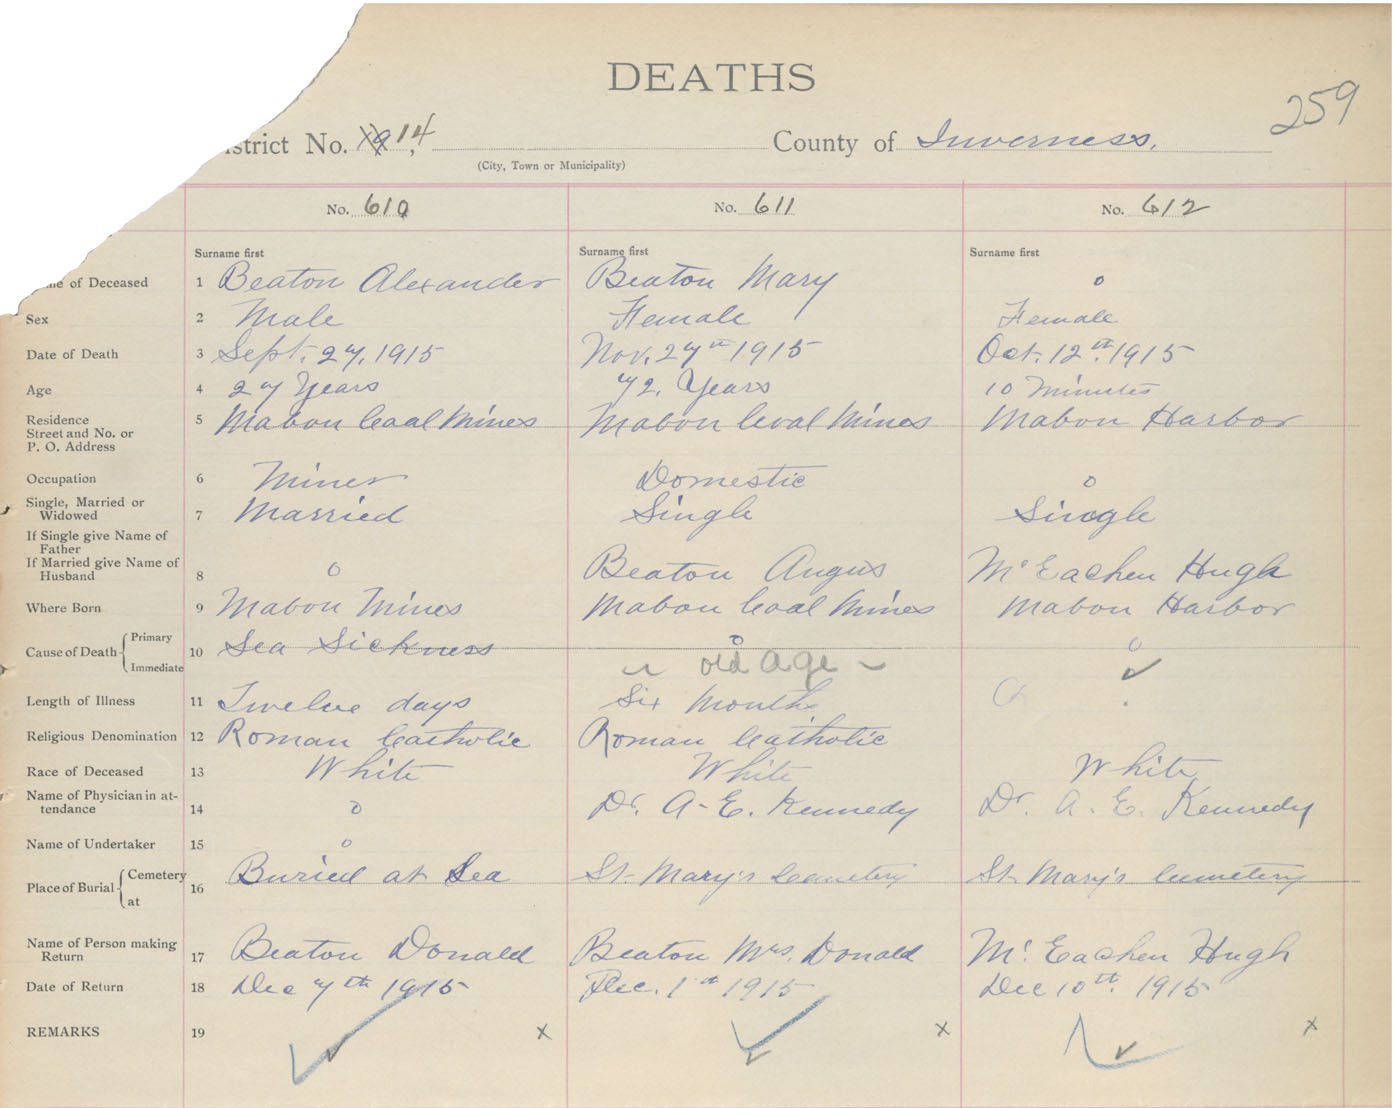 DEATHS
259
istrict No. 14, County of Inverness.
(City, Town or Municipality)
No. 610 No. 611 No. 612
Surname first Surname first Surname first
me of Deceased 1 Beaton Alexander Beaton Mary o
Sex 2 Male Female Female
Date of Death 3 Sept. 27, 1915 Nov. 27th 1915 Oct. 12th. 1915
Age 4 27 Years 72. Years 10 Minutes
Residence
Street and No. or
P. O. Address 5 Mabou Coal Mines Mabou Coal Mines Mabou Harbor
Occupation 6 Miner Domestic o
Single, Married or
Widowed 7 Married Single Single
If Single give Name of
Father
If Married give Name of
Husband 8 o Beaton Angus McEachen Hugh
Where Born 9 Mabou Mines Mabou Coal Mines Mabou Harbor
Cause of Death { Primary
Immediate 10 Sea Sickness o old age o
Length of Illness 11 Twelve days Six Months
Religious Denomination 12 Roman Catholic Roman Catholic
Race of Deceased 13 White White White
Name of Physician in at-
tendance 14 o Dr. A. E. Kennedy Dr. A. E. Kennedy
Name of Undertaker 15 o
Place of Burial { Cemetery
at 16 Buried at Sea St. Mary's Cemetery St. Mary's Cemetery
Name of Person making
Return 17 Beaton Donald Beaton Mrs. Donald Mc Eachen Hugh
Date of Return 18 Dec 7th 1915 Dec. 1st 1915 Dec 10th. 1915
REMARKS 19 x x x